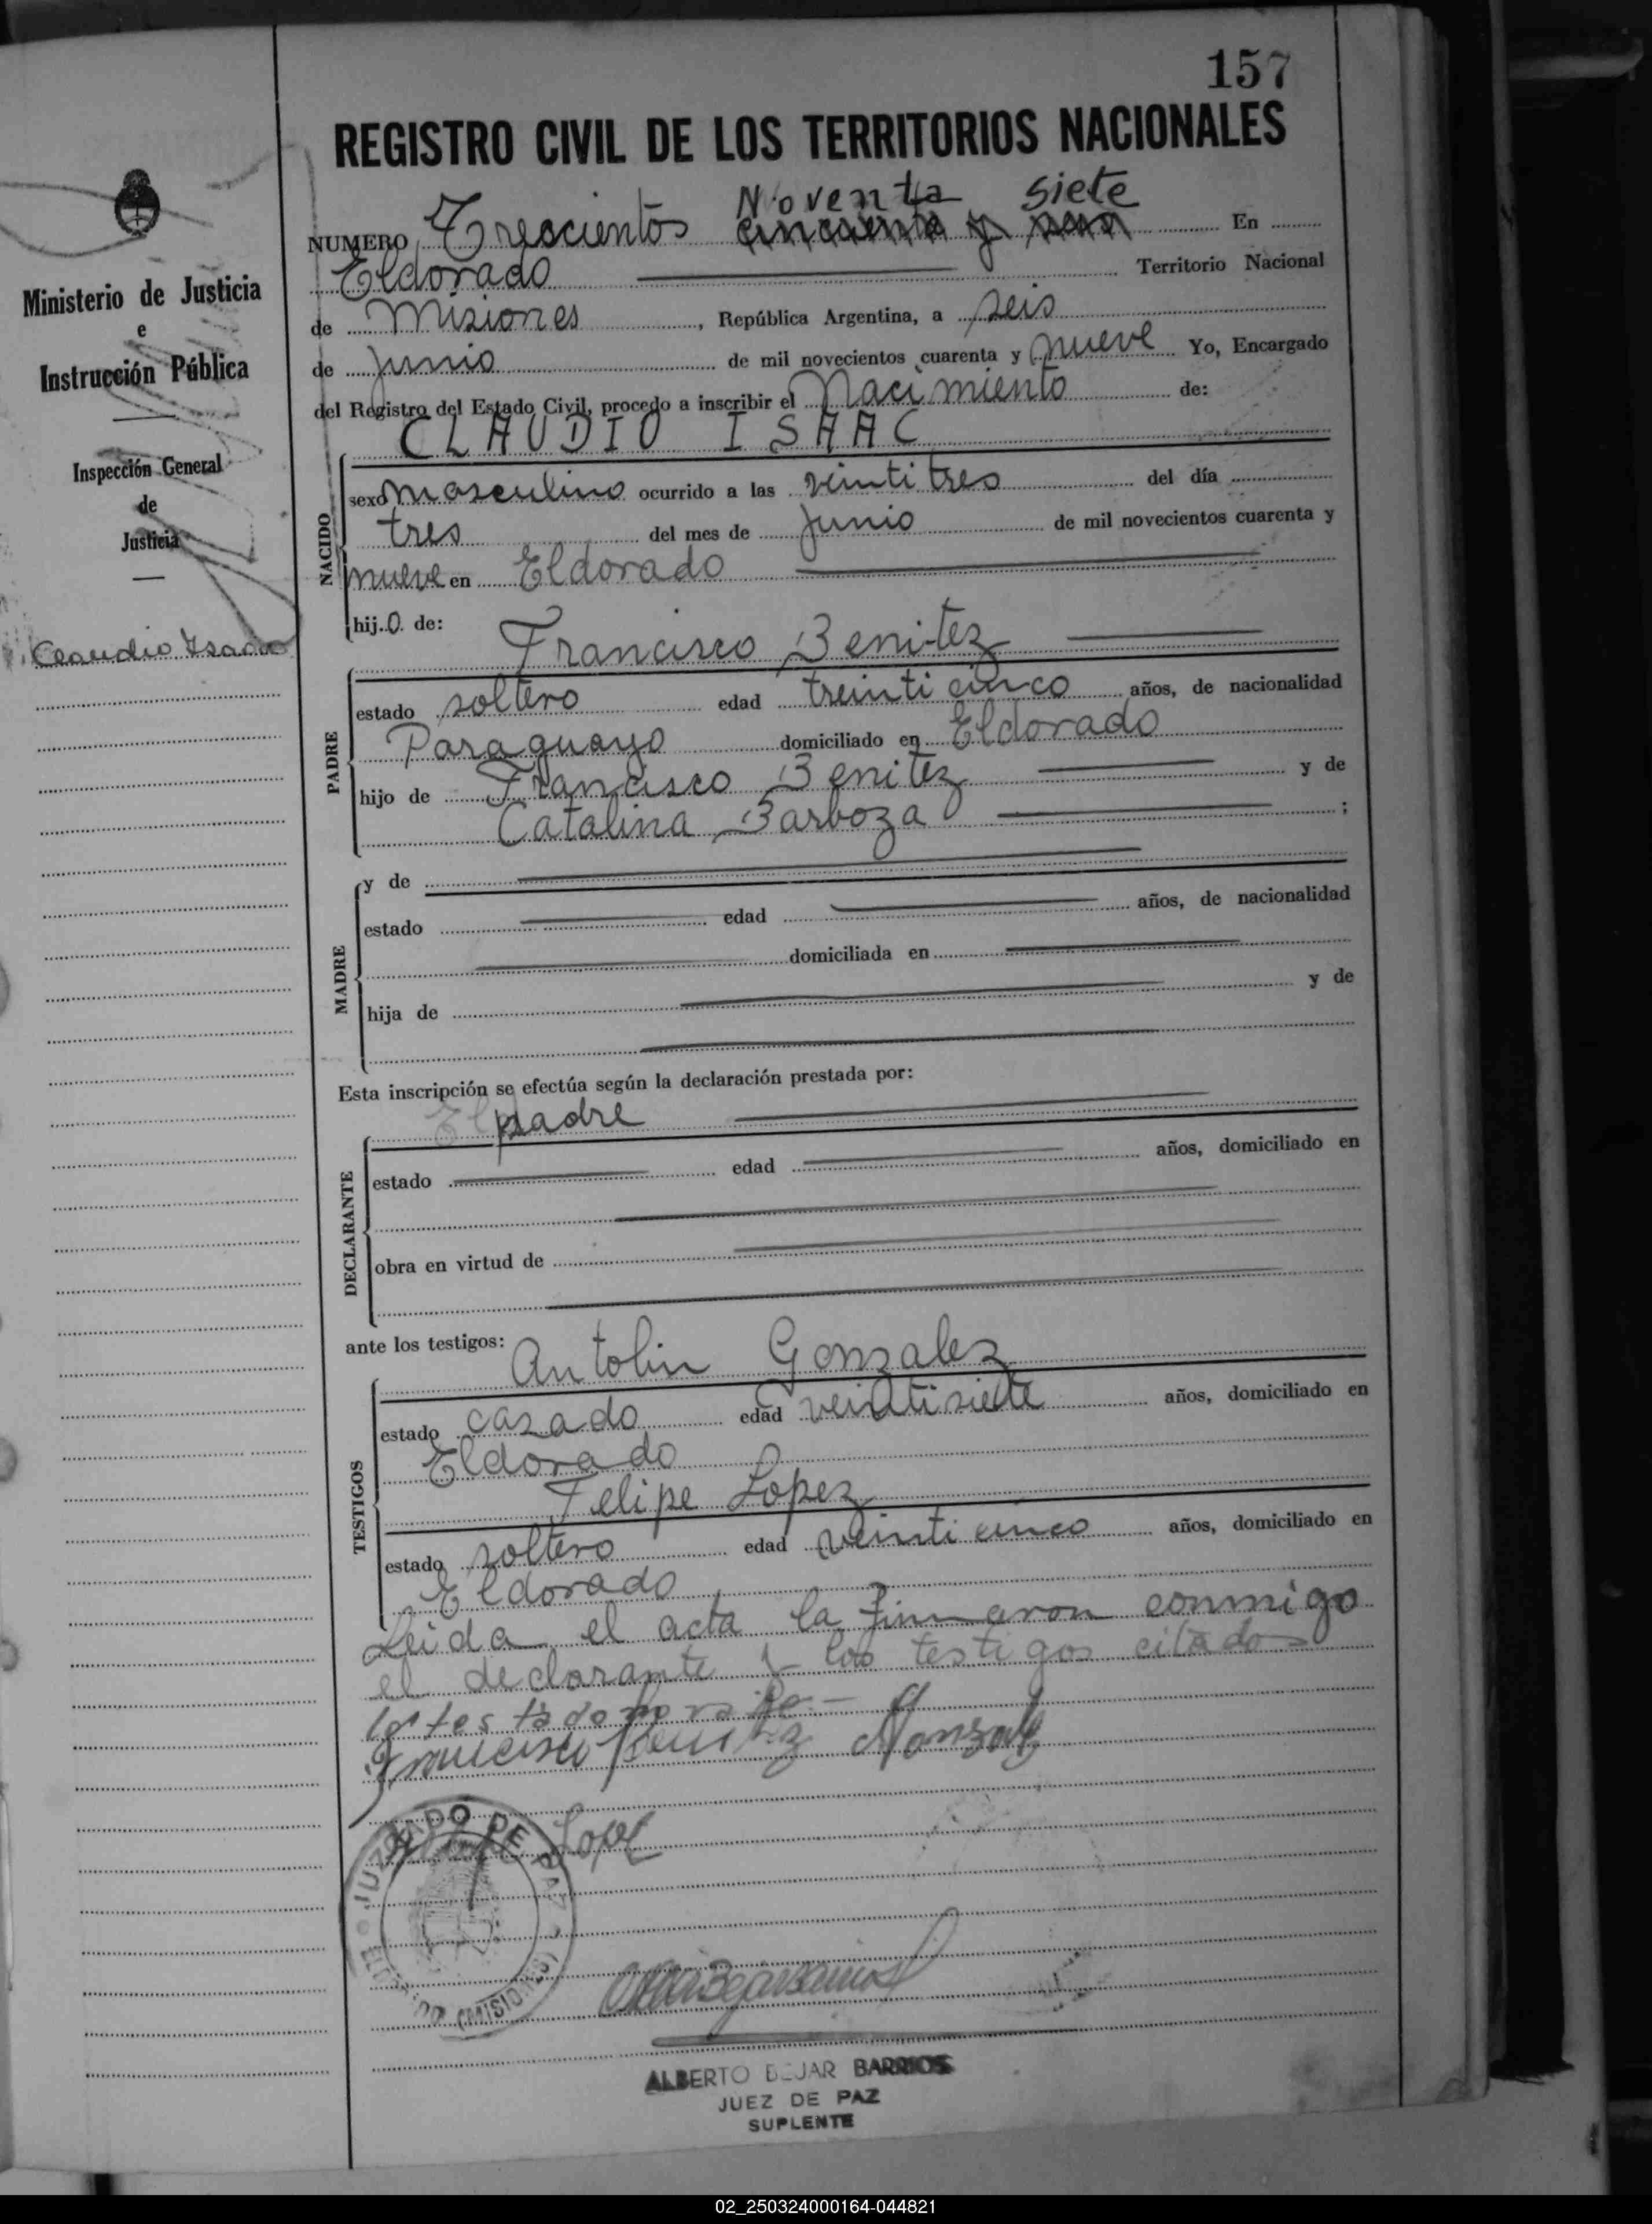 157
REGISTRO CIVIL DE LOS TERRITORIOS NACIONALES
Noventa siete
NUMERO Trescientos cincuenta y En
Eldorado Territorio Nacional
de Misiones, República Argentina, a seis
de junio de mil novecientos cuarenta y nueve Yo, Encargado
del Registro del Estado Civil, procedo a inscribir el Nacimiento de:
CLAUDIO ISAAC
NACIDO
sexo masculino ocurrido a las veinti tres del día
tres del mes de junio de mil novecientos cuarenta y
nueve en Eldorado
hijo de:
Francisco Benitez
PADRE
estado soltero edad treinti cinco años, de nacionalidad
Paraguayo domiciliado en Eldorado
hijo de Francisco Benitez y de
Catalina Barboza ;
MADRE
y de
estado edad años, de nacionalidad
domiciliada en
hija de y de
Esta inscripción se efectúa según la declaración prestada por:
El padre
DECLARANTE
estado edad años, domiciliado en
obra en virtud de
ante los testigos:
Antolin Gonzalez
TESTIGOS
estado casado edad veintisiete años, domiciliado en
Eldorado
Felipe Lopez
estado soltero edad veinti cinco años, domiciliado en
Eldorado
Leida el acta la firmaron conmigo
el declarante y los testigos citados
lo testado no vale
Francisco Benitez A Gonzalez
Lopez
JUZGADO DE PAZ
ELDORADO (MISIONES)
ALBERTO BEJAR BARRIOS
JUEZ DE PAZ
SUPLENTE
Ministerio de Justicia
e
Instrucción Pública
Inspección General
de
Justicia
Claudio Isaac
02_250324000164-044821